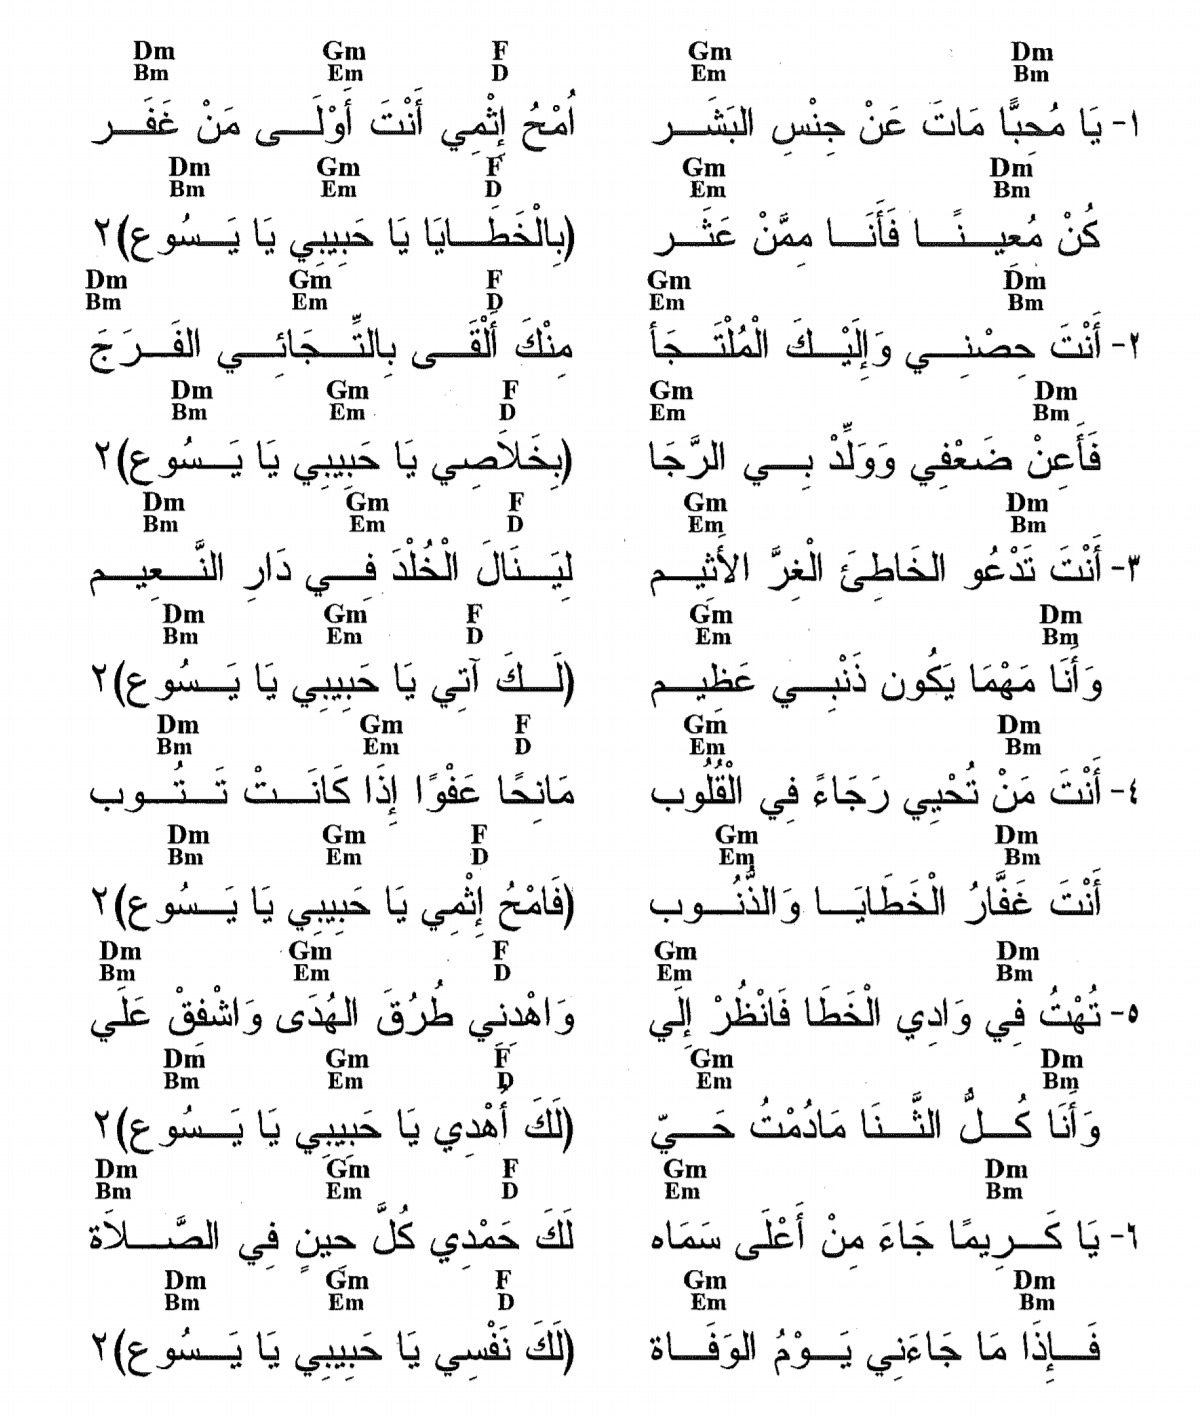 Dm Gm F Gm Dm
Bm Em D Em Bm
١- يَا مُحِبًّا مَاتَ عَنْ جِنْسِ البَشَـــر اُمْحُ إِثْمِي أَنْتَ أَوْلَــــى مَنْ غَفَــــر
Dm Gm F Gm Dm
Bm Em D Em Bm
كُنْ مُعيـــنًـــــا فَأَنَـــا مِمَّنْ عَثَـــر (بِالْخَطَـــايَا يَا حَبِيبِي يَا يَـــسُوع)٢
Dm Gm F Gm Dm
Bm Em D Em Bm
٢- أَنْتَ حِصْنِـــي وَإِلَيْـــكَ الْمُلْتَـــجَأ مِنْكَ أَلْقَـــى بِالتِّـــجَائِـــي الفَـــرَجَ
Dm Gm F Gm Dm
Bm Em D Em Bm
فَأَعِنْ ضَعْفِي وَوَلِّدْ بِـــي الرَّجَا (بِخَلاَصِي يَا حَبِيبِي يَا يَـــسُوع)٢
Dm Gm F Gm Dm
Bm Em D Em Bm
٣- أَنْتَ تَدْعُو الخَاطِئَ الْغِرَّ الأَثِيـــم لِيَـــنَالَ الْخُلْدَ فِـــي دَارِ النَّـــعِيـــم
Dm Gm F Gm Dm
Bm Em D Em Bm
وَأَنَا مَهْمَا يَكُون ذَنْبِـــي عَظِيـــم (لَـــكَ آتِي يَا حَبِيبِي يَا يَـــسُوع)٢
Dm Gm F Gm Dm
Bm Em D Em Bm
٤- أَنْتَ مَنْ تُحْيِي رَجَاءً فِي الْقُلُوب مَانِحًا عَفْوًا إِذَا كَانَـــتْ تَـــتُـــوب
Dm Gm F Gm Dm
Bm Em D Em Bm
أَنْتَ غَفَّارُ الْخَطَايَـــا وَالذُّنُـــوب (فَامْحُ إِثْمِي يَا حَبِيبِي يَا يَـــسُوع)٢
Dm Gm F Gm Dm
Bm Em D Em Bm
٥- تُهْتُ فِي وَادِي الْخَطَا فَانْظُرْ إِلَي وَاهْدِنِي طُرُقَ الهُدَى وَاشْفِقْ عَلَي
Dm Gm F Gm Dm
Bm Em D Em Bm
وَأَنَا كُـــلُّ الثَّـــنَا مَادُمْتُ حَـــيّ (لَكَ أُهْدِي يَا حَبِيبِي يَا يَـــسُوع)٢
Dm Gm F Gm Dm
Bm Em D Em Bm
٦- يَا كَـــرِيمًا جَاءَ مِنْ أَعْلَى سَمَاه لَكَ حَمْدِي كُلَّ حِينٍ فِي الصَّـــلاَة
Dm Gm F Gm Dm
Bm Em D Em Bm
فَـــإِذَا مَا جَاءَنِي يَـــوْمُ الوَفَـــاة (لَكَ نَفْسِي يَا حَبِيبِي يَا يَـــسُوع)٢